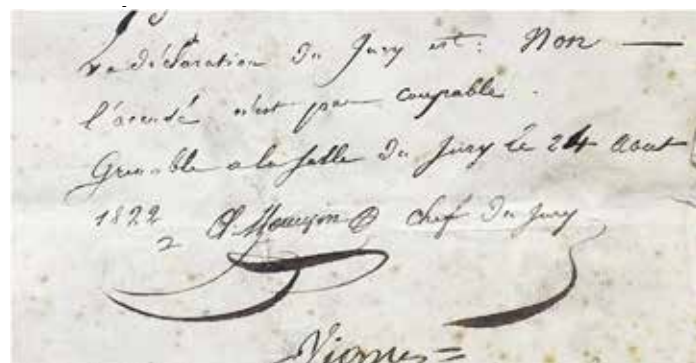 La déclaration du Jury est : Non —
l'accusé n'est pas coupable .
Grenoble a la salle du Jury le 24 Aout
1822 chef du Jury